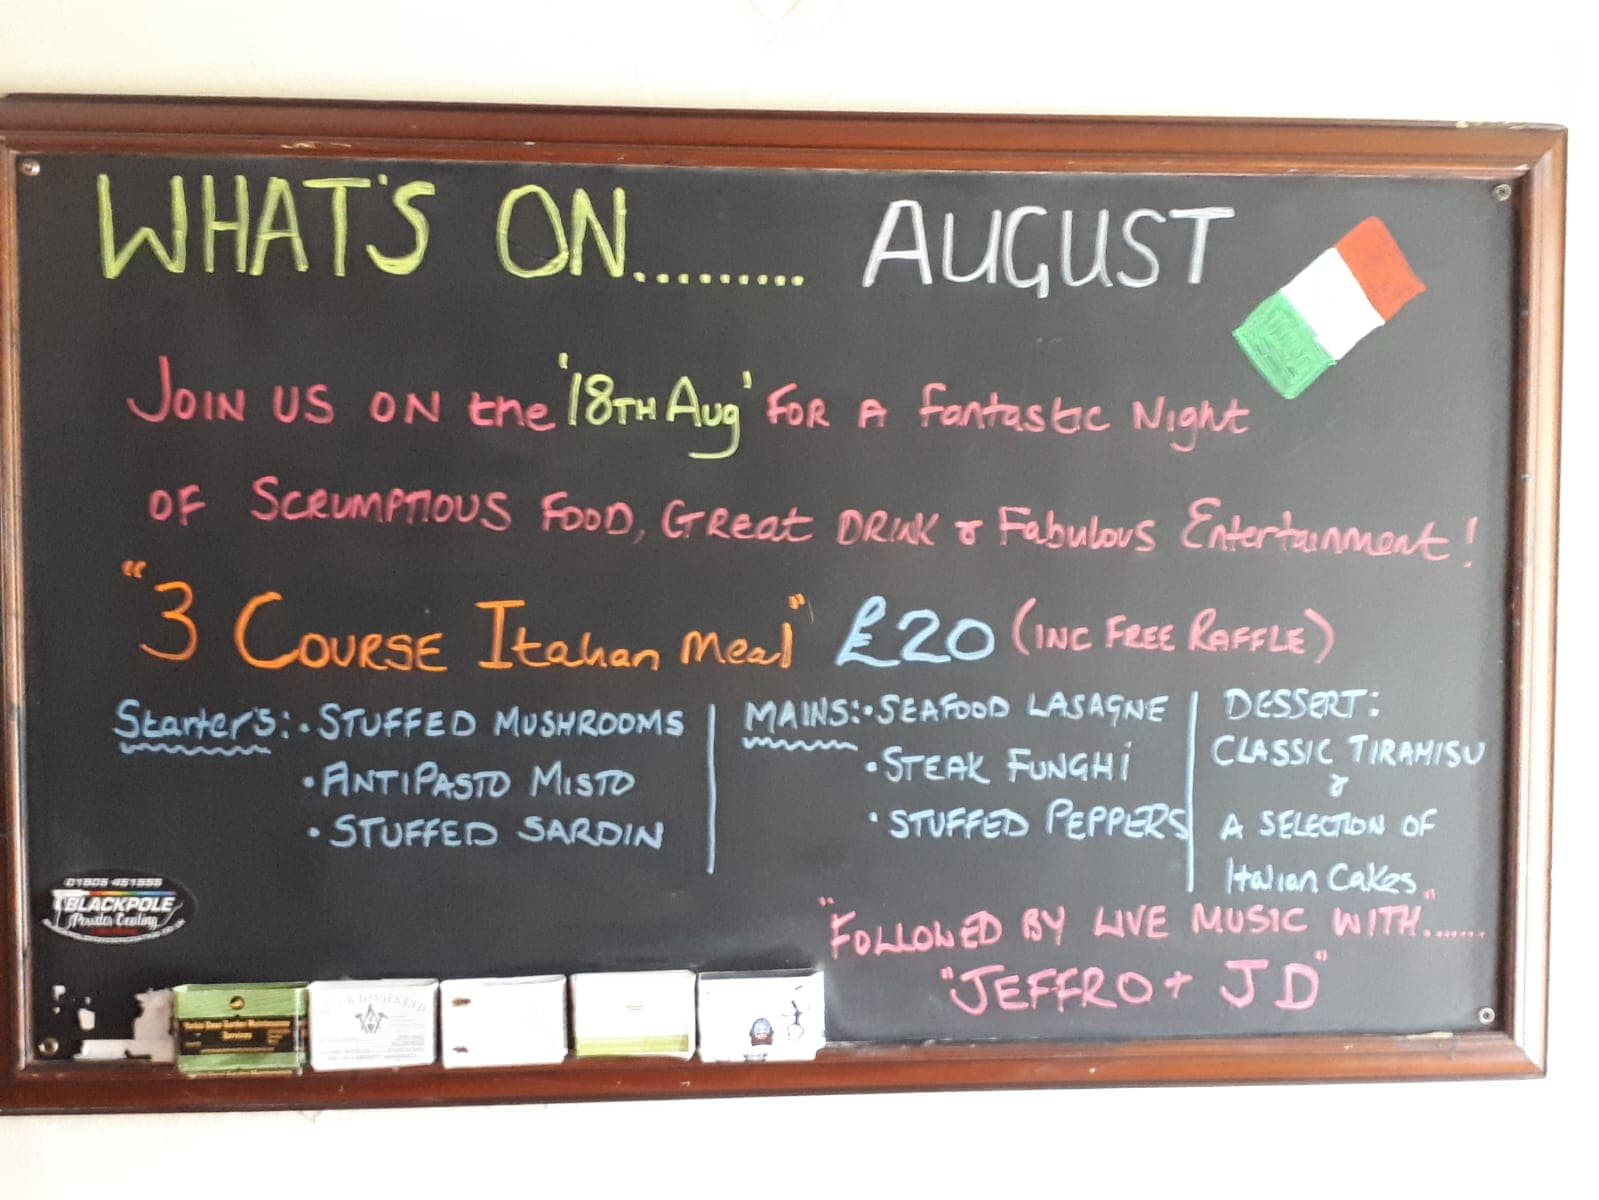 WHAT'S ON......... AUGUST
JOIN US ON the '18TH Aug' FOR A fantastic Night
OF SCRUMPTIOUS FOOD, GReat DRINK & Fabulous Entertainment!
"3 COURSE Italian Meal" £20 (INC FREE RAFFLE)
Starter's: • STUFFED MUSHROOMS
• ANTIPASTO MISTO
• STUFFED SARDIN
MAINS: • SEAFOOD LASAGNE
• STEAK FUNGHi
• STUFFED PEPPERS
DESSERT:
CLASSIC TIRAMISU
&
A SELECTION OF
Italian Cakes
"FOLLOWED BY LIVE MUSIC WITH"......
"JEFFRO + JD"
01905 451555
BLACKPOLE
Powder Coating